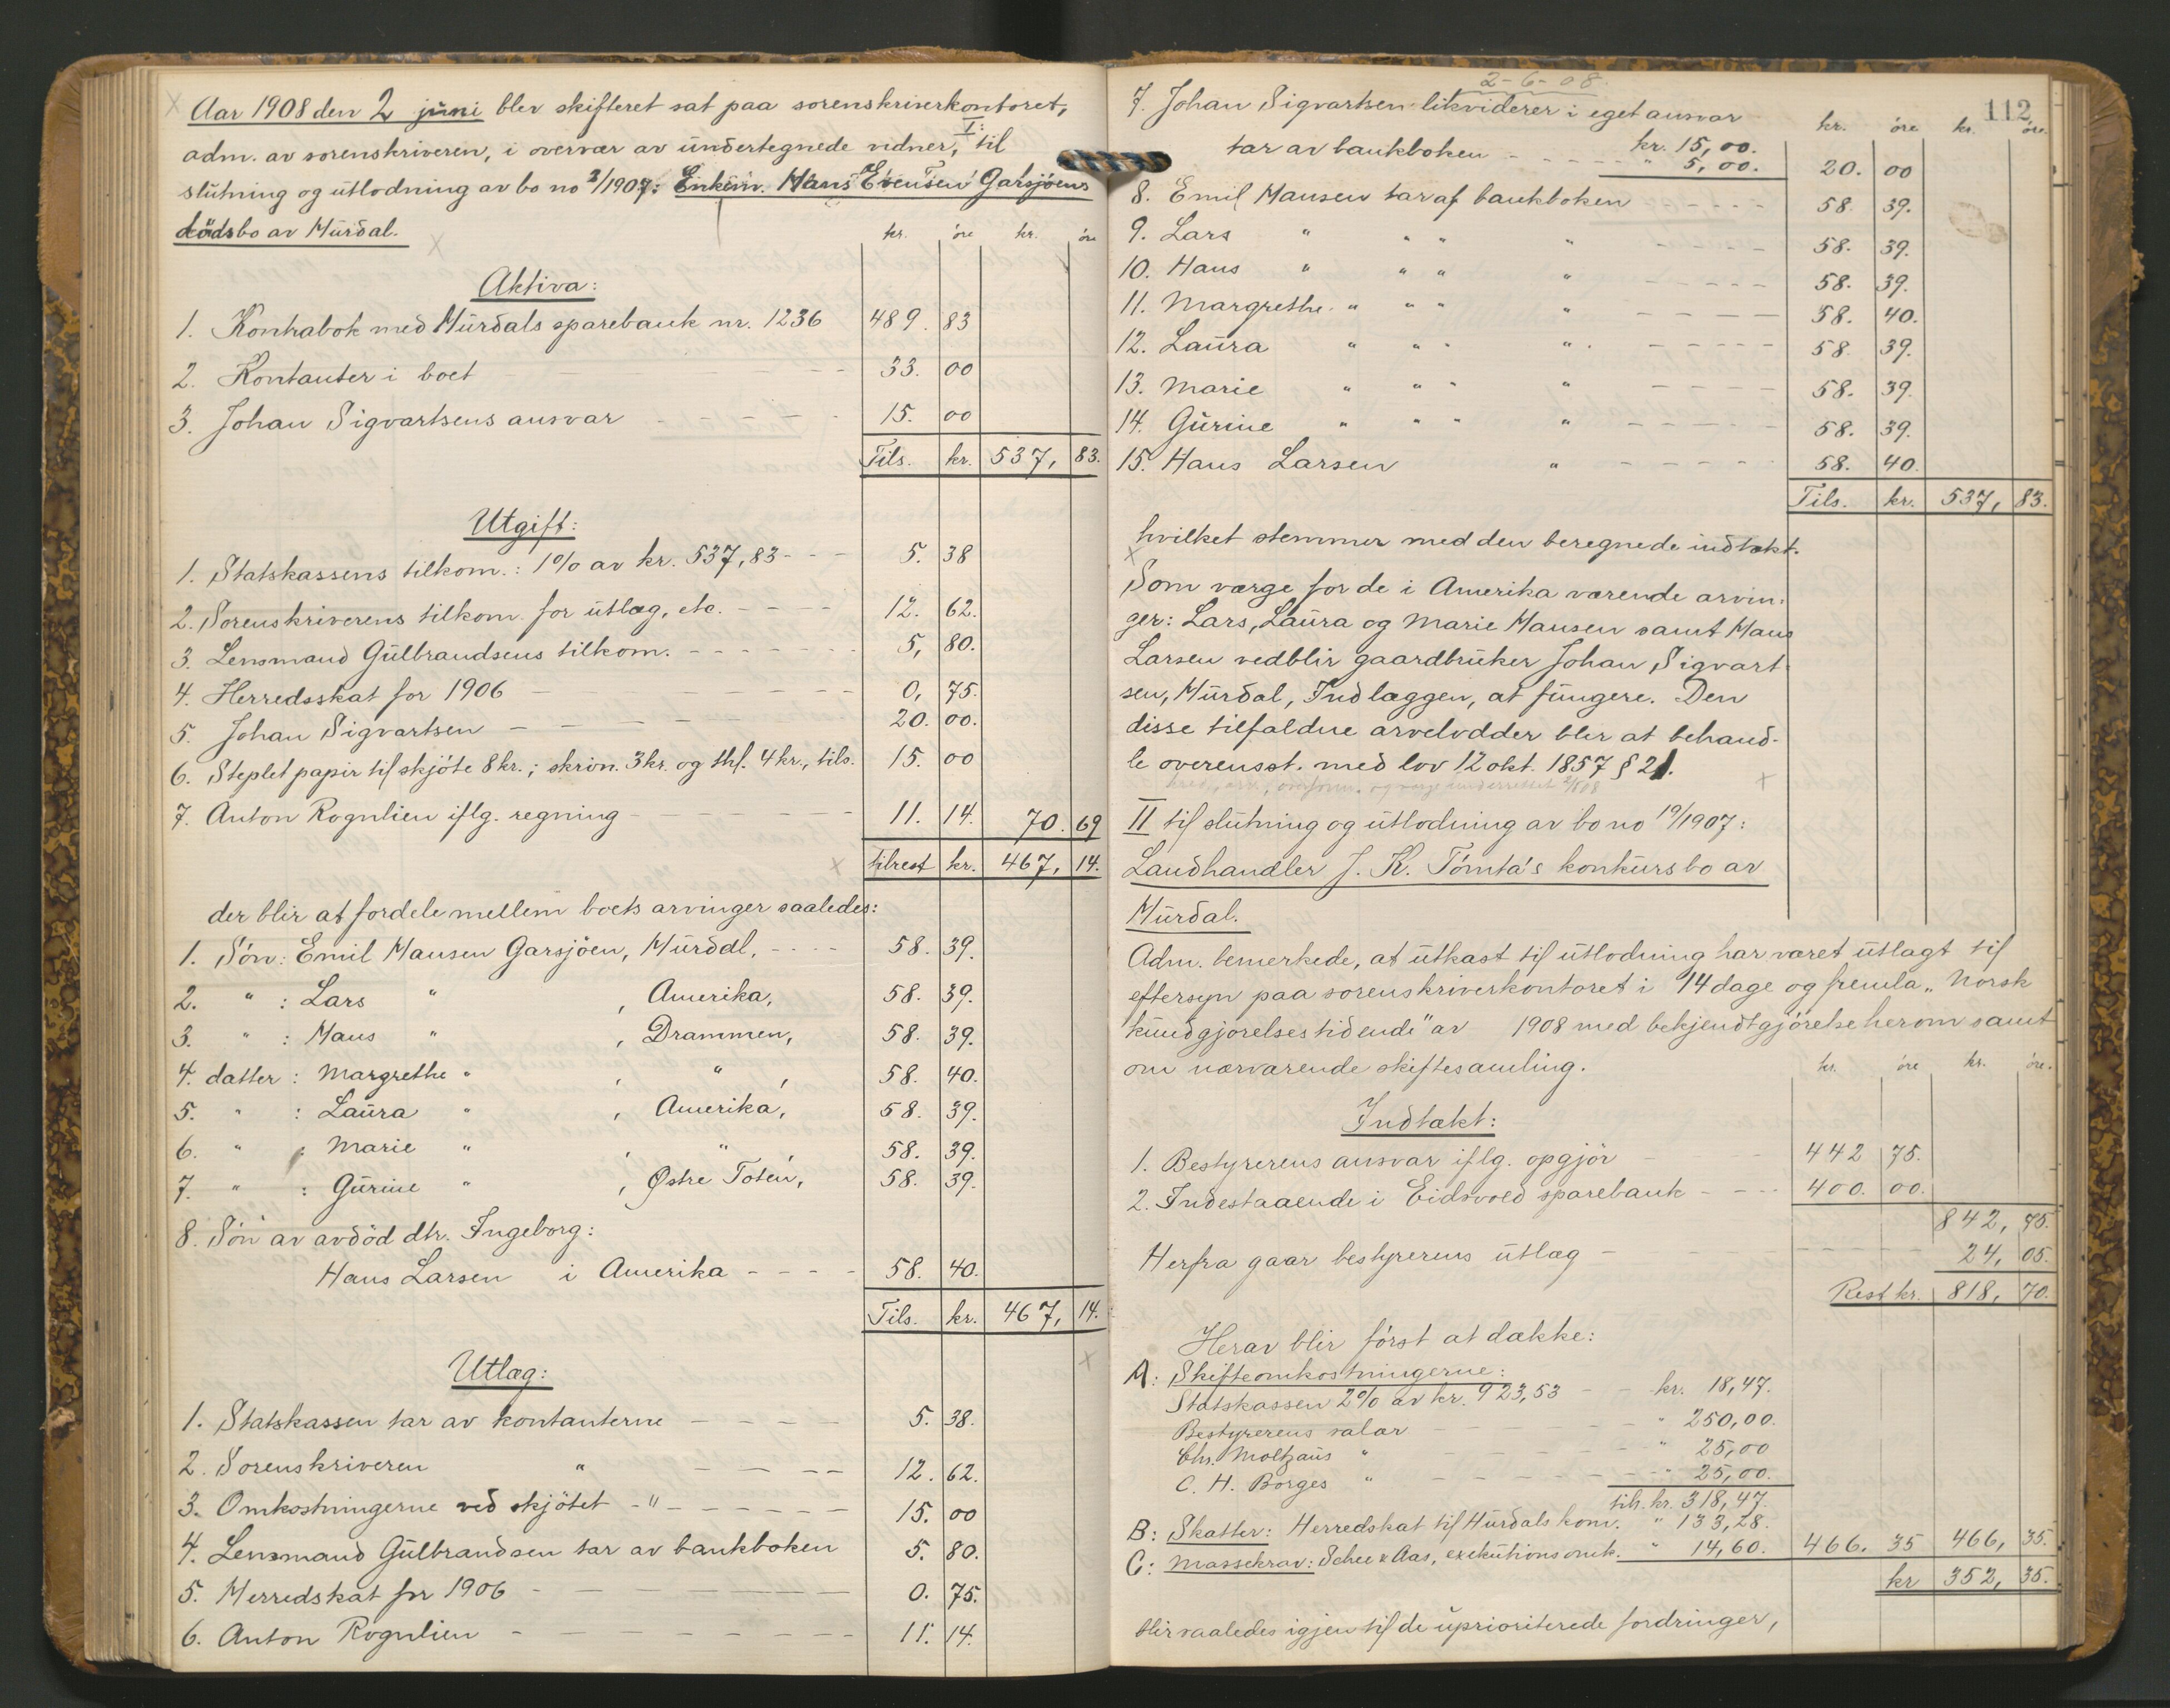 Aar 1908 den 2 juni blev skifteret sat paa sorenskriverkontoret,
adm. av sorenskriveren, i overvær av undertegnede vidner, I: til
slutning og utlodning av bo no 2/1907: Enkem. Hans Evensen Garsjøens
dødsbo av Hurdal.
kr. øre kr. øre
Aktiva:
1. Kontrabok med Hurdals sparebank nr. 1236 489. 83
2. Kontanter i boet 33. 00
3. Johan Sigvartsens ansvar 15. 00
Tils. kr. 537, 83.
Utgift:
1. Statskassens tilkom.: 1% av kr. 537,83 - - - 5. 38
2. Sorenskriverens tilkom. for utlæg, etc. - - - - 12. 62.
3. Lensmand Gulbrandsens tilkom. - - - - - - - 5, 80.
4. Herredsskat for 1906 - - - - 0, 75.
5. Johan Sigvartsen - - - - - 20. 00.
6. Steplet papir til skjöte 8 kr.; skriv. 3 kr. og thl. 4 kr., tils. 15. 00
7. Anton Rognlien iflg. regning - - - - - 11. 14. 70. 69
tilrest kr. 467, 14.
der blir at fordele mellem boets arvinger saaledes:
1. Sön: Emil Hansen Garsjöen, Hurdal, - - - - 58. 39.
2. " : Lars " , Amerika, 58. 39.
3. " : Hans " , Drammen, 58. 39.
4. datter : Margrethe " , " , 58. 40.
5. " : Laura " , Amerika, 58. 39.
6. " : Marie " , " 58. 39.
7. " : Gurine " , Østre Toten, 58. 39.
8. Sön av avdöd dtr. Ingeborg:
Hans Larsen i Amerika - - - - 58. 40.
Tils. kr. 467, 14.
Utlæg:
1. Statskassen tar av kontanterne - - - - 5. 38.
2. Sorenskriveren " - - - - 12. 62.
3. Omkostningerne ved skjötet - " - - - - - - 15. 00
4. Lensmand Gulbrandsen tar av bankboken 5. 80.
5. Herredskat for 1906 - - - - - - - 0. 75.
6. Anton Rognlien - - - - - - - 11. 14.
2-6-08.
112
7. Johan Sigvartsen likviderer i eget ansvar kr. øre kr. øre.
kr. 15,00.
tar av bankboken - - - - - " 5,00. 20. 00
8. Emil Hansen tar af bankboken - - - - - 58. 39.
9. Lars " " " " - - - - - 58. 39.
10. Hans " " " " - - - - - 58. 39.
11. Margrethe " " " " - - - - - 58. 40.
12. Laura " " " " - - - - - 58. 39.
13. Marie " " " " - - - - 58. 39.
14. Gurine " " " " - - - - - 58. 39.
15. Hans Larsen " - - - - - 58. 40.
Tils. kr. 537, 83.
hvilket stemmer med den beregnede indtækt.
Som værge for de i Amerika værende arvin-
ger: Lars, Laura og Marie Hansen samt Hans
Larsen vedblir gaardbruker Johan Sigvart-
sen, Hurdal, Indlæggen, at fungere. Den
disse tilfaldne arvelodder blir at behand-
le overensst. med lov 12 okt. 1857 § 21.
II til slutning og utlodning av bo no 19/1907:
Landhandler J. K. Tömta's konkursbo av
Hurdal.
Adm. bemerkede, at utkast til utlodning har været utlagt til
eftersyn paa sorenskriverkontoret i 14 dage og fremla „Norsk
kundgjørelsestidende" av 1908 med bekjendtgjörelse herom samt
om nærværende skiftesamling.
kr. øre kr. øre.
Indtækt:
1. Bestyrerens ansvar iflg. opgjör - - 442 75.
2. Indestaaende i Eidsvold sparebank - - - 400. 00.
842, 75.
Herfra gaar bestyrerens utlæg - - - - - 24, 05.
Rest kr. 818, 70.
Herav blir först at dække:
A: Skifteomkostningerne:
Statskassen 2% av kr. 923,53 - - kr. 18,47.
Bestyrerens salær - - - - - " 250,00.
Chr. Moltzaus " - - - - - " 25,00
C. H. Borges " - - - - - " 25,00.
tils. kr. 318,47.
B: Skatter: Herredskat til Hurdals kom. " 133,28.
C: Massekrav: Schee & Aas, exekutionsomk. " 14,60. 466. 35 466, 35.
kr 352, 35.
blir saaledes igjen til de uprioriterede fordringer,